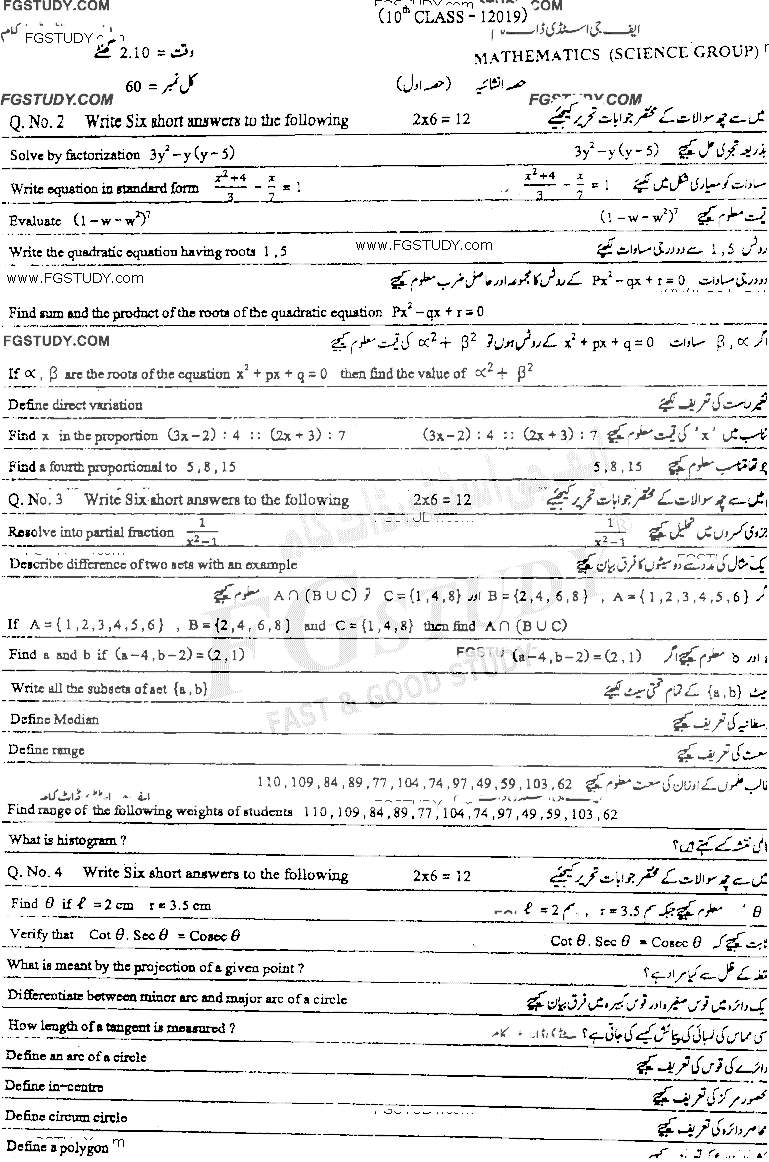 FGSTUDY.COM FGSTUDY.COM
(10th CLASS - 12019) ایف جی اسٹڈی ڈاٹ
FGSTUDY.COM وقت = 2.10 گھنٹے MATHEMATICS (SCIENCE GROUP)
کل نمبر = 60 (حصہ اول) حصہ انشائیہ
FGSTUDY.COM FGSTUDY.COM
Q. No. 2 Write Six short answers to the following 2x6 = 12 میں سے چھ سوالات کے مختصر جوابات تحریر کیجئے
Solve by factorization 3y² – y (y – 5) 3y² – y (y – 5) بذریعہ تجزی حل کیجئے
Write equation in standard form (x²+4)/3 – x/7 = 1 (x²+4)/3 – x/7 = 1 مساوات کو معیاری شکل میں لکھئے
Evaluate (1 – w – w²)⁷ (1 – w – w²)⁷ قیمت معلوم کیجئے
Write the quadratic equation having roots 1 , 5 www.FGSTUDY.com روٹس 1 , 5 سے دو درجی مساوات لکھئے
www.FGSTUDY.com دو درجی مساوات Px² – qx + r = 0 کے روٹس کا مجموعہ اور حاصل ضرب معلوم کیجئے
Find sum and the product of the roots of the quadratic equation Px² – qx + r = 0
FGSTUDY.COM اگر ∝ , β مساوات x² + px + q = 0 کے روٹس ہوں تو ∝² + β² کی قیمت معلوم کیجئے
If ∝ , β are the roots of the equation x² + px + q = 0 then find the value of ∝² + β²
Define direct variation تغیر راست کی تعریف لکھئے
Find x in the proportion (3x – 2) : 4 :: (2x + 3) : 7 (3x – 2) : 4 :: (2x + 3) : 7 تناسب میں 'x' کی قیمت معلوم کیجئے
Find a fourth proportional to 5 , 8 , 15 5 , 8 , 15 چوتھا متناسب معلوم کیجئے
Q. No. 3 Write Six short answers to the following 2x6 = 12 میں سے چھ سوالات کے مختصر جوابات تحریر کیجئے
Resolve into partial fraction 1/(x²–1) 1/(x²–1) جزوی کسروں میں تحلیل کیجئے
Describe difference of two sets with an example یک مثال کی مدد سے دو سیٹوں کا فرق بیان کیجئے
A = {1,2,3,4,5,6} , B = {2,4,6,8} اور C = {1,4,8} تو A∩(B∪C) معلوم کیجئے
If A = {1,2,3,4,5,6} , B = {2,4,6,8} and C = {1,4,8} then find A∩(B∪C)
Find a and b if (a–4, b–2) = (2, 1) FGSTU (a–4, b–2) = (2, 1) اور b معلوم کیجئے اگر
Write all the subsets of set {a , b} سیٹ {a , b} کے تمام تحتی سیٹ لکھئے
Define Median وسطانیہ کی تعریف کیجئے
Define range سعت کی تعریف کیجئے
110, 109, 84, 89, 77, 104, 74, 97, 49, 59, 103, 62 طالب علموں کے اوزان کی سعت معلوم کیجئے
Find range of the following weights of students 110, 109, 84, 89, 77, 104, 74, 97, 49, 59, 103, 62
What is histogram ? کالمی نقشہ کسے کہتے ہیں؟
Q. No. 4 Write Six short answers to the following 2x6 = 12 میں سے چھ سوالات کے مختصر جوابات تحریر کیجئے
Find θ if ℓ = 2 cm r = 3.5 cm ℓ = 2 سم , r = 3.5 سم معلوم کیجئے جبکہ θ
Verify that Cot θ . Sec θ = Cosec θ Cot θ . Sec θ = Cosec θ ثابت کیجئے کہ
What is meant by the projection of a given point ? نقطہ کے ظل سے کیا مراد ہے؟
Differentiate between minor arc and major arc of a circle یک دائرہ میں قوس صغیرہ اور قوس کبیرہ میں فرق بیان کیجئے
How length of a tangent is measured ? سی مماس کی لمبائی کی پیمائش کیسے کی جاتی ہے؟
Define an arc of a circle دائرے کی قوس کی تعریف کیجئے
Define in-centre محصور مرکز کی تعریف کیجئے
Define circum circle محاصر دائرہ کی تعریف کیجئے
Define a polygon
FG STUDY
FAST & GOOD STUDY